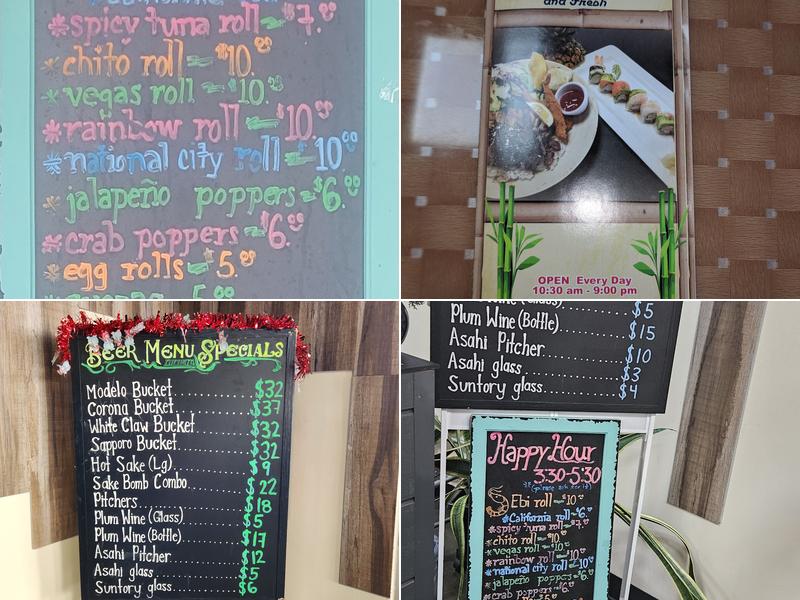 *spicy tuna roll = $7.00
*chito roll = $10.00
*vegas roll = $10.00
*rainbow roll = $10.00
*national city roll = $10.00
*jalapeño poppers = $6.00
*crab poppers = $6.00
*egg rolls = $5.00
and Fresh
OPEN Every Day
10:30 am - 9:00 pm
BEER MENU SPECIALS
Modelo Bucket $32
Corona Bucket $37
White Claw Bucket $32
Sapporo Bucket $32
Hot Sake (Lg) $9
Sake Bomb Combo $22
Pitchers $18
Plum Wine (Glass) $5
Plum Wine (Bottle) $17
Asahi Pitcher $12
Asahi glass $5
Suntory glass $6
(Glass) $5
Plum Wine (Bottle) $15
Asahi Pitcher $10
Asahi glass $3
Suntory glass $4
Happy Hour
3:30-5:30
Ebi roll = $10.00
*California roll = $6.00
*spicy tuna roll = $7.00
*chito roll = $10.00
*vegas roll = $10.00
*rainbow roll = $10.00
*national city roll = $10.00
*jalapeño poppers = $6.00
*crab poppers = $6.00